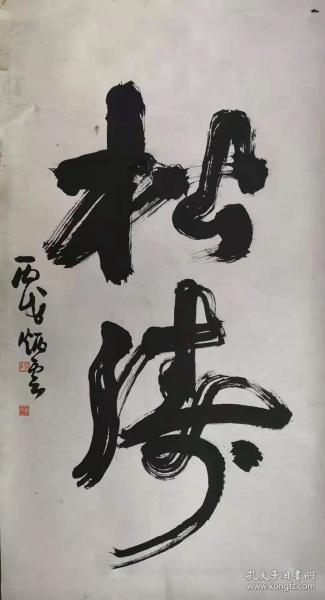 松涛
丙戌炳云
孔夫子旧书网
www.kongfz.com